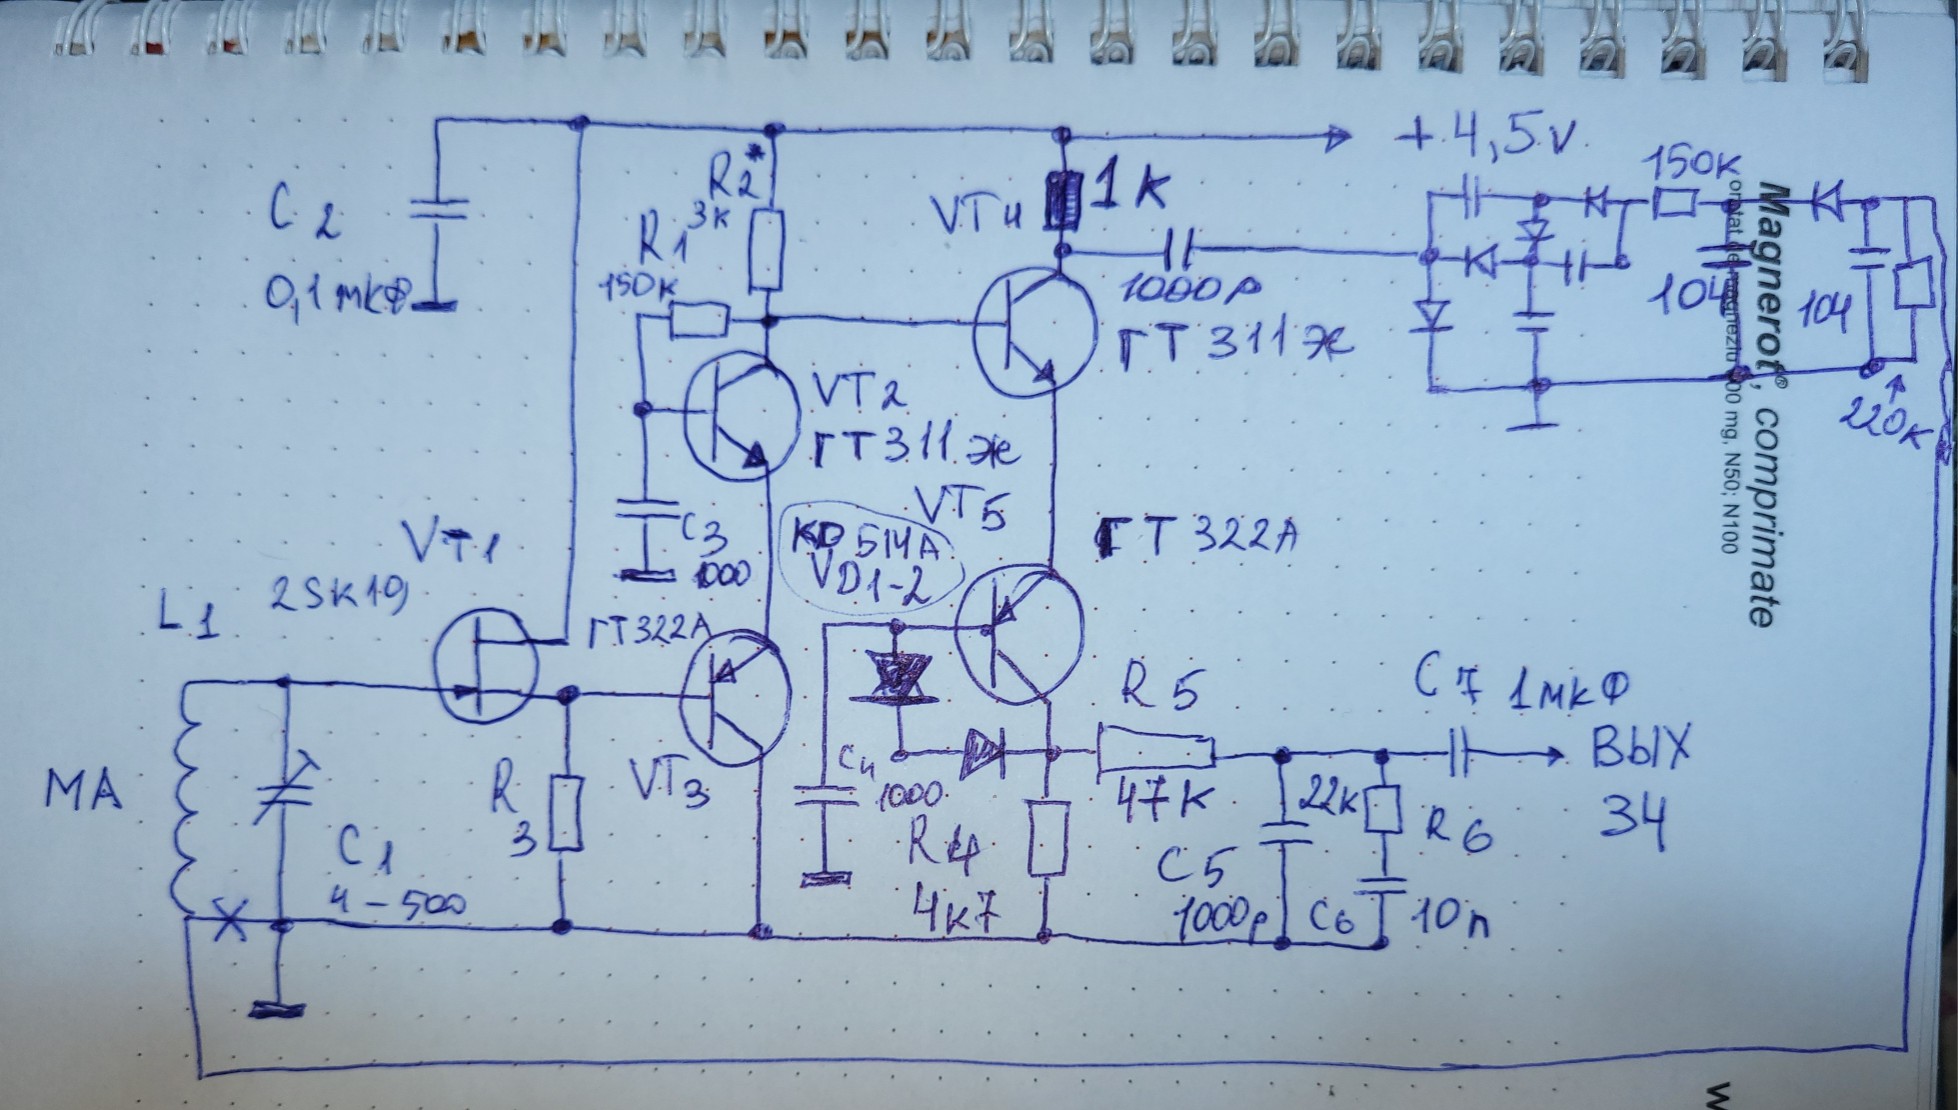 + 4,5 v.
C 2
0,1 мкФ
R2*
3к
R1
150к
VT4
1к
1000р
ГТ 311 Ж
150к
104
104
220к
Magnerot®, comprimate
00 mg. N50; N100
VT2
ГТ 311 Ж
C3
1000
VT5
КD 514А
VD1-2
ГТ 322А
VT1
2SK19
L1
ГТ322А
МА
R
3
VT3
C4
1000
R4
4к7
R5
47к
C7 1мкФ
ВЫХ
ЗЧ
22к
R6
C5
1000р
C6
10п
C1
4-500
X
W